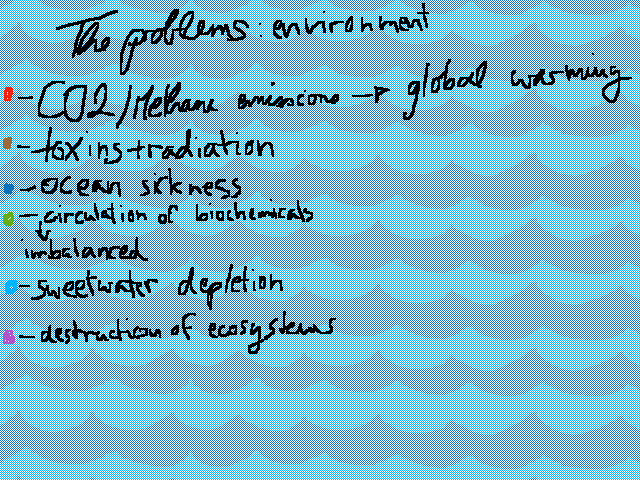 The problems: environment
- CO2/Methane emissions → global warming
- toxins + radiation
- ocean sickness
- circulation of biochemicals
↓
imbalanced
- sweetwater depletion
- destruction of ecosystems